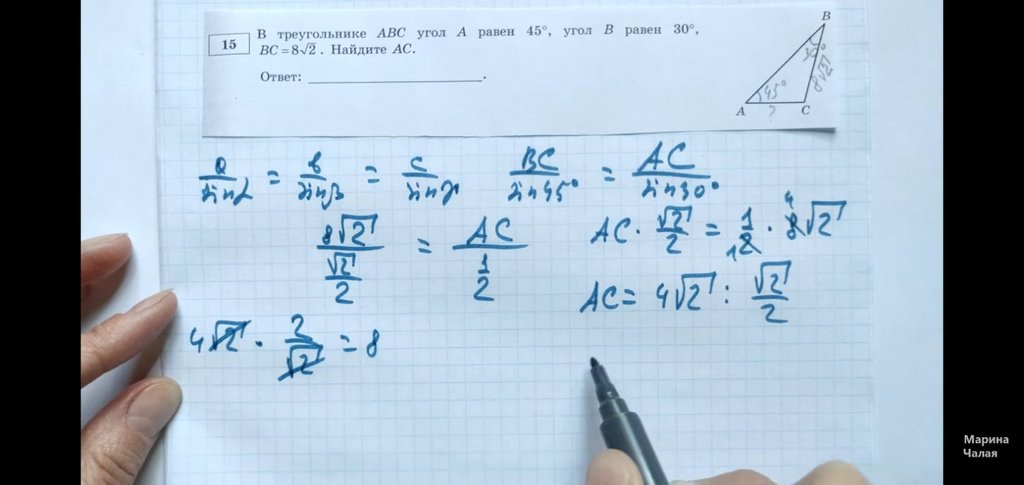 15
В треугольнике ABC угол A равен 45°, угол B равен 30°,
BC = 8√2 . Найдите AC.
Ответ: ____________________.
B
30°
8√2
45°
A ? C
a/sinα = b/sinβ = c/sinγ
BC/sin45° = AC/sin30°
8√2/(√2/2) = AC/(1/2)
AC · √2/2 = 1/2 · 8√2
1 4
AC = 4√2 : √2/2
4√2 · 2/√2 = 8
Марина
Чалая